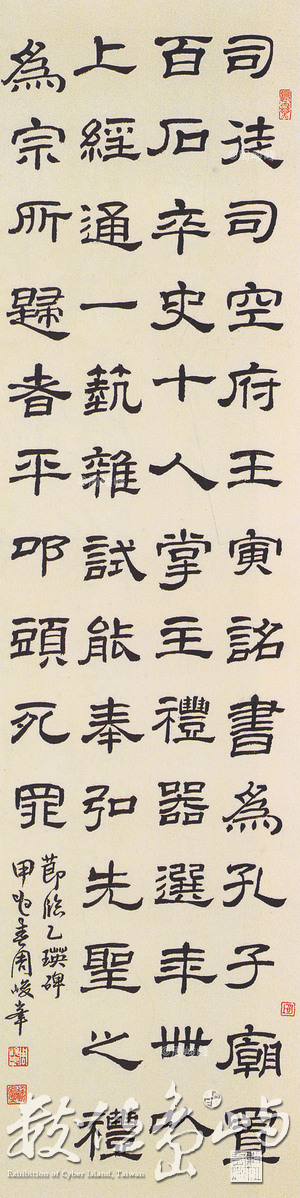 司徒司空府王寅詔書為孔子廟置
百石卒史十人掌主禮器選年卌以
上經通一藝雜試能奉弘先聖之禮
為宗所歸者平叩頭死罪
節臨乙瑛碑
甲 春周峻峯
數位島嶼
Exhibition of Cyber Island, Taiwan